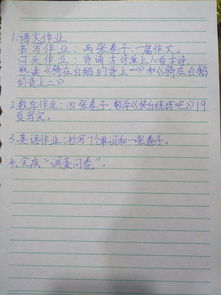 1.语文作业
书写作业：两张卷子，一篇作文。
口头作业：背诵古诗单上10首古诗。
熟读《骑在白鹅的背上一》和《骑在白鹅
的背上二》
2.数学作业：四张卷子，数学《快乐练练吧》19
页写完。
3.英语作业：书写了个单词和一张卷子。
4.完成“调查问卷”。